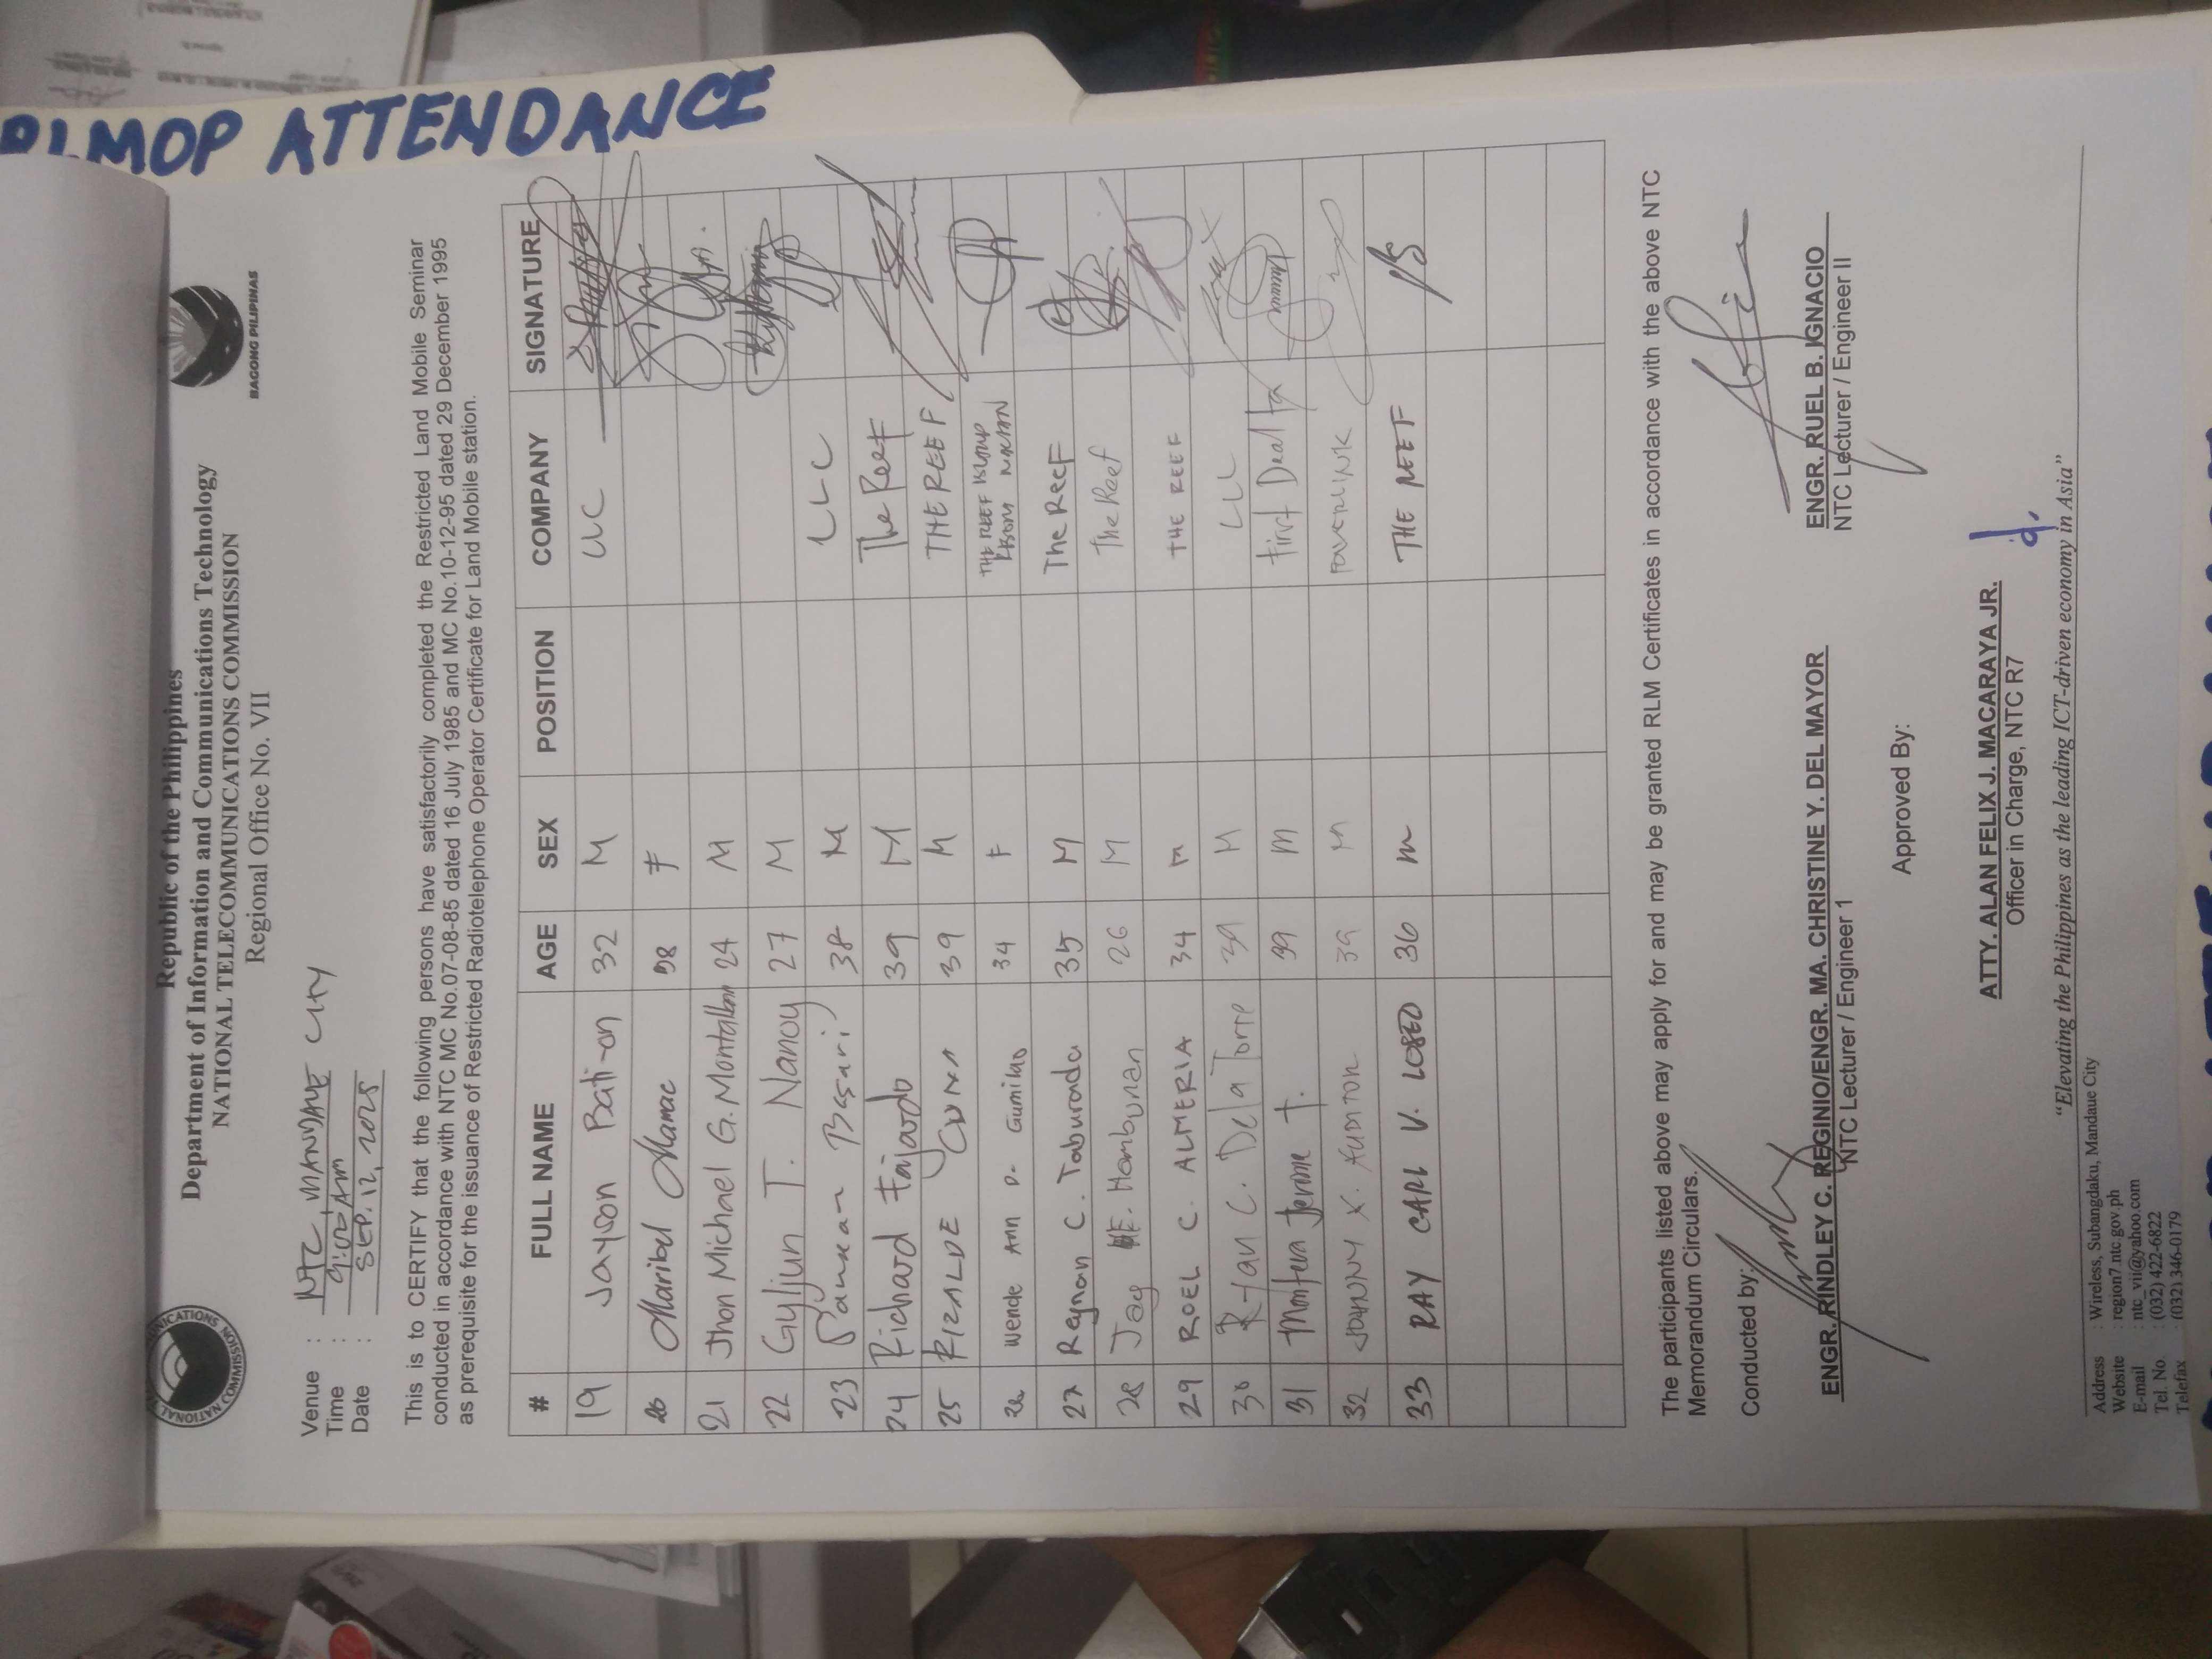 RLMOP ATTENDANCE
Republic of the Philippines
Department of Information and Communications Technology
NATIONAL TELECOMMUNICATIONS COMMISSION
Regional Office No. VII
BAGONG PILIPINAS
Venue : NTC, MANDAUE CITY
Time : 9:00 AM
Date : SEP. 12, 2025
This is to CERTIFY that the following persons have satisfactorily completed the Restricted Land Mobile Seminar
conducted in accordance with NTC MC No.07-08-85 dated 16 July 1985 and MC No.10-12-95 dated 29 December 1995
as prerequisite for the issuance of Restricted Radiotelephone Operator Certificate for Land Mobile station.
# FULL NAME AGE SEX POSITION COMPANY SIGNATURE
19 Jayson Bati-on 32 M LLC
20 Maribel Mamac 38 F
21 Jhon Michael G. Montalban 24 M
22 Gyljun T. Nanoy 27 M
23 38 M LLC
24 Richard Fajardo 39 M The Reef
25 RIZALDE 39 M THE REEF
26 Wende Ann D. Gumilao 34 F THE REEF ISLAND
27 Reynan C. Taburonda 35 M The Reef
28 Jay Hambunan 26 M The Reef
29 ROEL C. ALMERIA 34 M THE REEF
30 Ryan C. Dela Torre 39 M LLC
31 Jerome T. 39 M First Dealta
32 39 M POWERLINK
33 RAY CARL V. LOBEO 36 M THE REEF
The participants listed above may apply for and may be granted RLM Certificates in accordance with the above NTC
Memorandum Circulars.
Conducted by:
ENGR. RINDLEY C. REGINIO/ENGR. MA. CHRISTINE Y. DEL MAYOR
NTC Lecturer / Engineer 1
ENGR. RUEL B. IGNACIO
NTC Lecturer / Engineer II
Approved By:
ATTY. ALAN FELIX J. MACARAYA JR.
Officer in Charge, NTC R7
"Elevating the Philippines as the leading ICT-driven economy in Asia"
Address : Wireless, Subangdaku, Mandaue City
Website : region7.ntc.gov.ph
E-mail : ntc_vii@yahoo.com
Tel. No. : (032) 422-6822
Telefax : (032) 346-0179